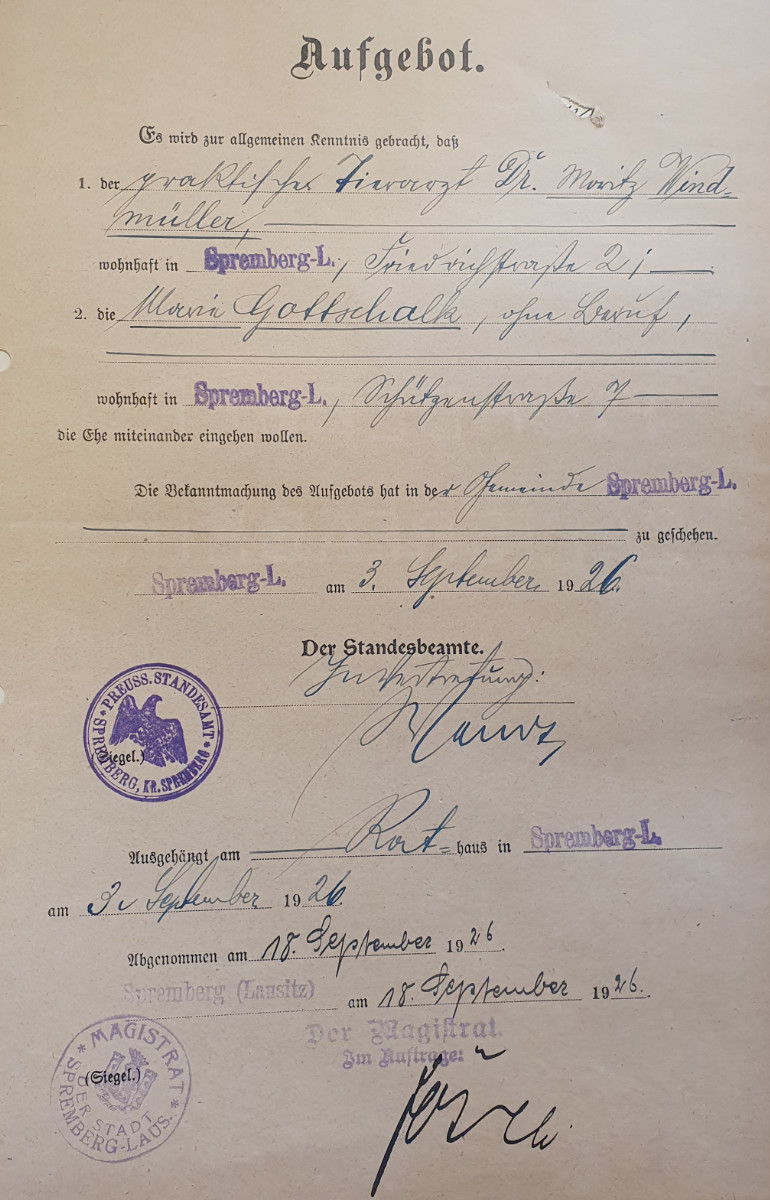 Aufgebot.
Es wird zur allgemeinen Kenntnis gebracht, daß
1. der praktische Tierarzt Dr. Moritz Wind-
müller,
wohnhaft in Spremberg-L., Friedrichstraße 2;
2. die Marie Gottschalk, ohne Beruf,
wohnhaft in Spremberg-L., Schützenstraße 7
die Ehe miteinander eingehen wollen.
Die Bekanntmachung des Aufgebots hat in der Gemeinde Spremberg-L.
zu geschehen.
Spremberg-L. am 3. September 1926.
Der Standesbeamte.
In Vertretung:
* PREUSS. STANDESAMT * SPREMBERG, KR. SPREMBERG
(Siegel.)
Ausgehängt am Rat-haus in Spremberg-L.
am 3. September 1926.
Abgenommen am 18. September 1926.
Spremberg (Lausitz) am 18. September 1926.
Der Magistrat.
Im Auftrage:
* MAGISTRAT * DER STADT SPREMBERG-LAUS.
(Siegel.)